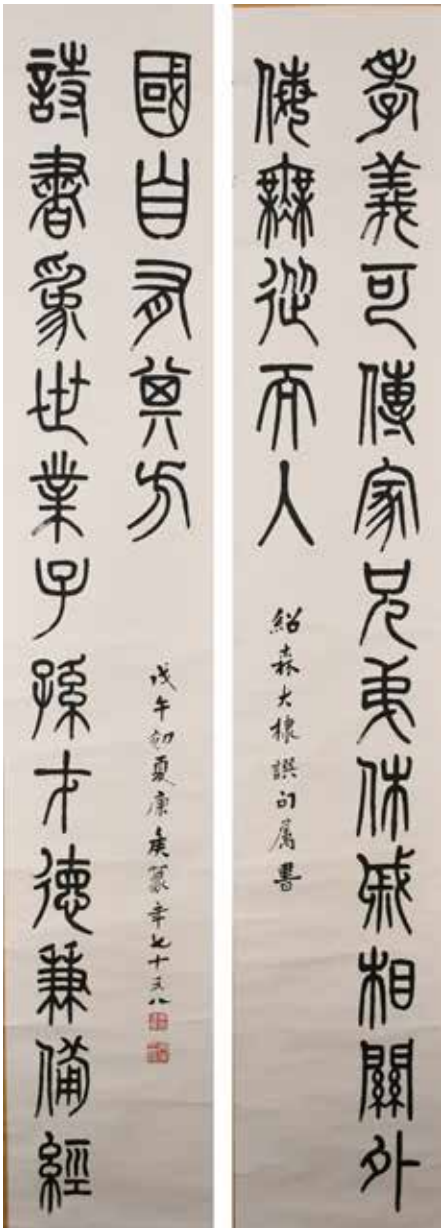 孝義可傳家兄弟休戚相關外
侮無從而入
紹森大棣譔句屬書
詩書爲世業子孫才德兼備經
國自有其方
戊午初夏康侯篆年七十又八